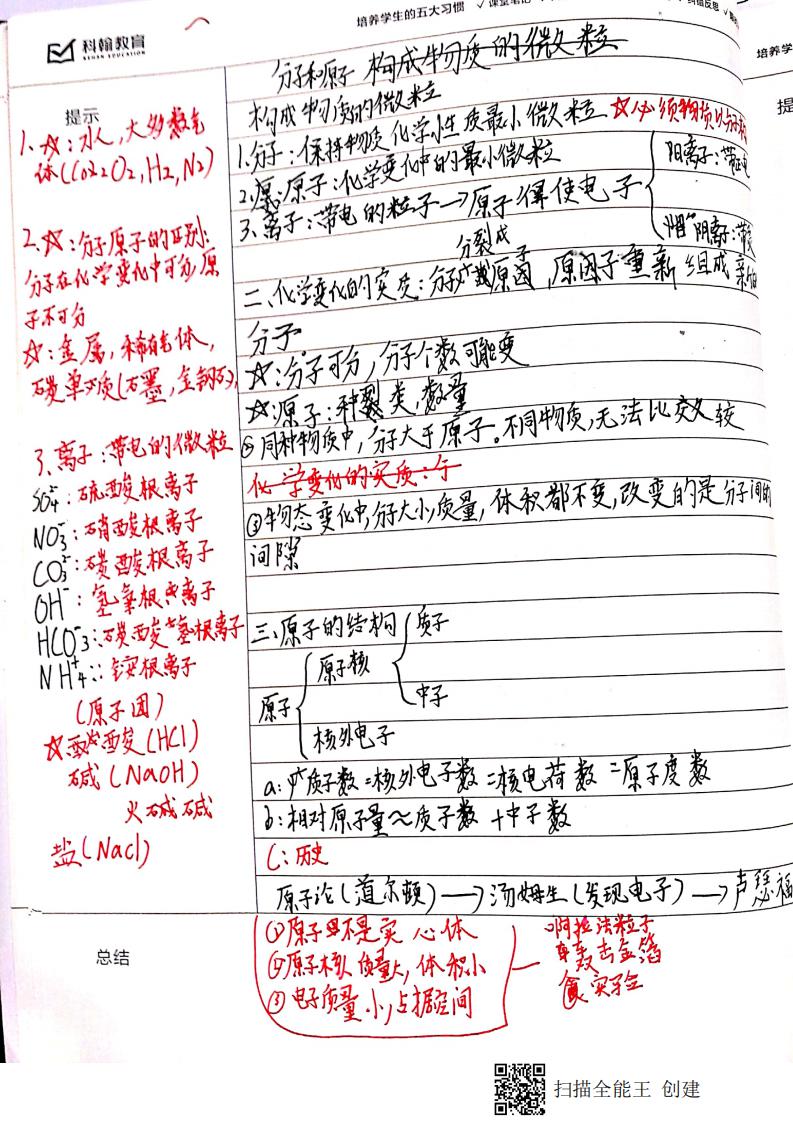 培养学生的五大习惯 ✓课堂笔记
科翰教育
KEHAN EDUCATION
培养学
提
提示
1.☆:水,大多数气
体(CO2、O2,H2,N2)
2.☆:分子原子的区别:
分子在化学变化中可分,原
子不可分
☆:金属,稀有气体,
碳单质(石墨,金刚石)
3.离子:带电的微粒
SO₄²⁻:硫酸根离子
NO₃⁻:硝酸根离子
CO₃²⁻:碳酸根离子
OH⁻:氢氧根离子
HCO⁻₃:碳酸氢根离子
NH⁺₄:铵根离子
(原子团)
☆酸(HCl)
碱(NaOH)
火碱
盐(Nacl)
分子和原子 构成物质的微粒
构成物质的微粒
1.分子:保持物质化学性质最小微粒 ☆必须物质以分子构
2.原子:化学变化中的最小微粒
阳离子:带正电
3.离子:带电的粒子→原子得使电子
阴离子:带
分裂成
二、化学变化的实质:分子 原子,原因子重新组成新的
分子
☆:分子可分,分子个数可能变
☆:原子:种类,数量
同种物质中,分子大于原子。不同物质,无法比较
化学变化的实质:分
③物态变化中,分子大小,质量,体积都不变,改变的是分子间的
间隙
三、原子的结构 质子
原子核
原子 中子
核外电子
a:质子数=核外电子数=核电荷数=原子序数
b:相对原子量≈质子数+中子数
C:历史
原子论(道尔顿)→汤姆生(发现电子)→卢瑟福
总结
①原子不是实心体
②原子核质量大,体积小
③电子质量小,占据空间
阿拉法粒子
轰击金箔
实验
扫描全能王 创建